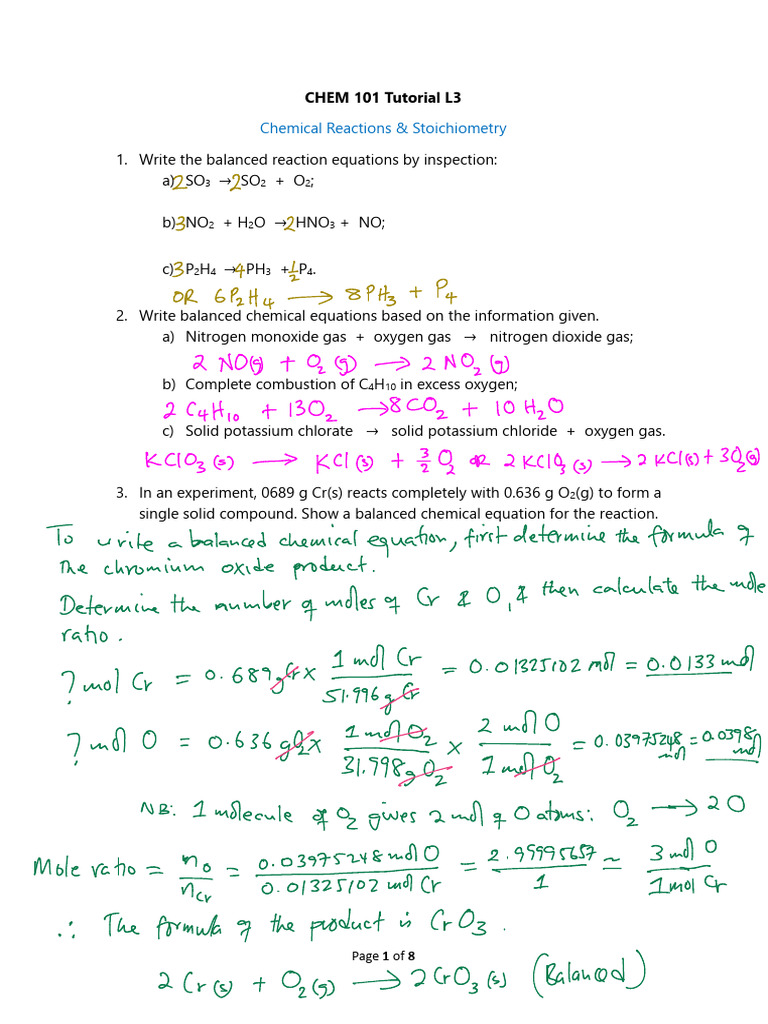 CHEM 101 Tutorial L3
Chemical Reactions & Stoichiometry
1. Write the balanced reaction equations by inspection:
a) 2SO₃ → 2SO₂ + O₂;
b) 3NO₂ + H₂O → 2HNO₃ + NO;
c) 3P₂H₄ → 4PH₃ + ½P₄.
OR 6P₂H₄ → 8PH₃ + P₄
2. Write balanced chemical equations based on the information given.
a) Nitrogen monoxide gas + oxygen gas → nitrogen dioxide gas;
2 NO(g) + O₂(g) → 2 NO₂(g)
b) Complete combustion of C₄H₁₀ in excess oxygen;
2 C₄H₁₀ + 13O₂ → 8CO₂ + 10 H₂O
c) Solid potassium chlorate → solid potassium chloride + oxygen gas.
KClO₃(s) → KCl(s) + 3/2 O₂ OR 2 KClO₃(s) → 2 KCl(s) + 3O₂(g)
3. In an experiment, 0689 g Cr(s) reacts completely with 0.636 g O₂(g) to form a
single solid compound. Show a balanced chemical equation for the reaction.
To write a balanced chemical equation, first determine the formula of
the chromium oxide product.
Determine the number of moles of Cr & O, & then calculate the mole
ratio.
? mol Cr = 0.689 g Cr x 1 mol Cr / 51.996 g Cr = 0.01325102 mol = 0.0133 mol
? mol O = 0.636 g O₂ x 1 mol O₂ / 31.998 g O₂ x 2 mol O / 1 mol O₂ = 0.03975248 mol = 0.0398 mol
NB: 1 molecule of O₂ gives 2 mol of O atoms: O₂ → 2O
Mole ratio = nO / nCr = 0.03975248 mol O / 0.01325102 mol Cr = 2.99995657 / 1 ≈ 3 mol O / 1 mol Cr
∴ The formula of the product is CrO₃.
Page 1 of 8
2 Cr(s) + O₂(g) → 2 CrO₃(s) (Balanced)